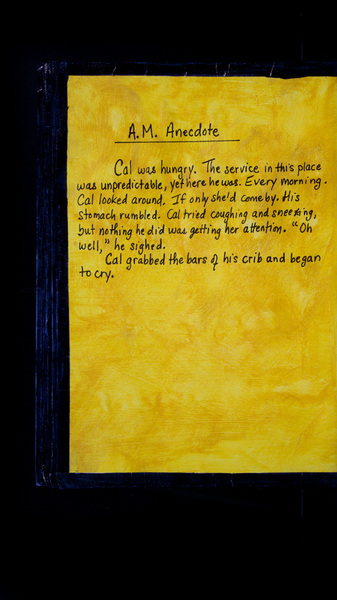 A.M. Anecdote
Cal was hungry. The service in this place
was unpredictable, yet here he was. Every morning.
Cal looked around. If only she'd come by. His
stomach rumbled. Cal tried coughing and sneezing,
but nothing he did was getting her attention. "Oh
well," he sighed.
Cal grabbed the bars of his crib and began
to cry.